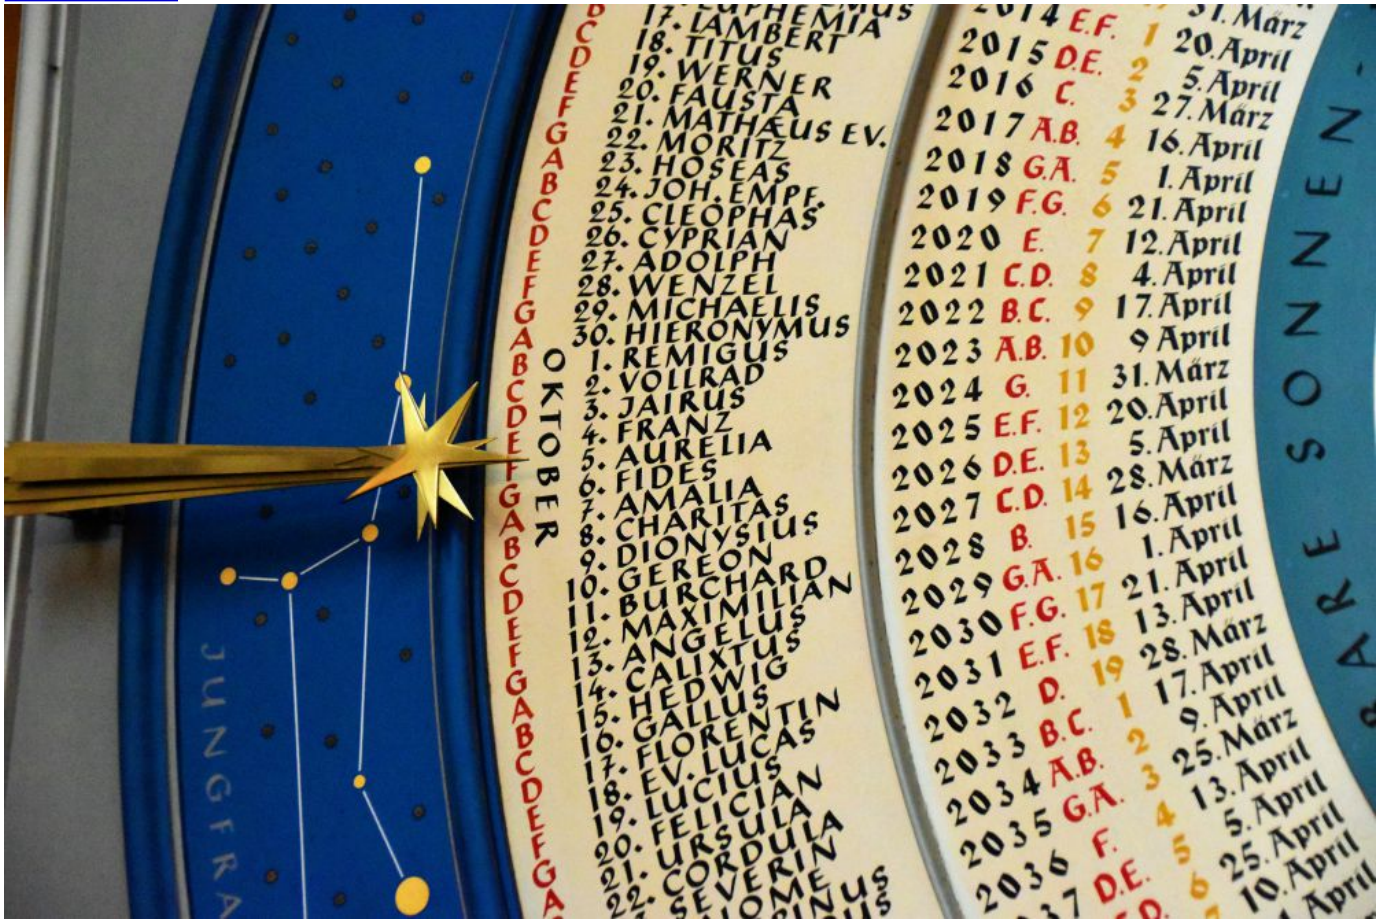 B
C
D
E
F
G
A
B
C
D
E
F
G
A
B
C
D
E
F
G
A
B
C
D
E
F
G
A
B
C
D
E
F
G
A
17. LAMBERT
18. TITUS
19. WERNER
20. FAUSTA
21. MATHÆUS EV.
22. MORITZ
23. HOSEAS
24. JOH. EMPF.
25. CLEOPHAS
26. CYPRIAN
27. ADOLPH
28. WENZEL
29. MICHAELIS
30. HIERONYMUS
OKTOBER
1. REMIGUS
2. VOLLRAD
3. JAIRUS
4. FRANZ
5. AURELIA
6. FIDES
7. AMALIA
8. CHARITAS
9. DIONYSIUS
10. GEREON
11. BURCHARD
12. MAXIMILIAN
13. ANGELUS
14. CALIXTUS
15. HEDWIG
16. GALLUS
17. FLORENTIN
18. EV. LUCAS
19. LUCIUS
20. FELICIAN
21. URSULA
22. CORDULA
SEVERIN
31. März
2014 E.F. 1 20. April
2015 D.E. 2 5. April
2016 C. 3 27. März
2017 A.B. 4 16. April
2018 G.A. 5 1. April
2019 F.G. 6 21. April
2020 E. 7 12. April
2021 C.D. 8 4. April
2022 B.C. 9 17. April
2023 A.B. 10 9 April
2024 G. 11 31. März
2025 E.F. 12 20. April
2026 D.E. 13 5. April
2027 C.D. 14 28. März
2028 B. 15 16. April
2029 G.A. 16 1. April
2030 F.G. 17 21. April
2031 E.F. 18 13. April
2032 D. 19 28. März
2033 B.C. 1 17. April
2034 A.B. 2 9. April
2035 G.A. 3 25. März
2036 F. 4 13. April
D.E. 5 5. April
6 25. April
10. April
April
ARE SONNEN-
JUNGFRA